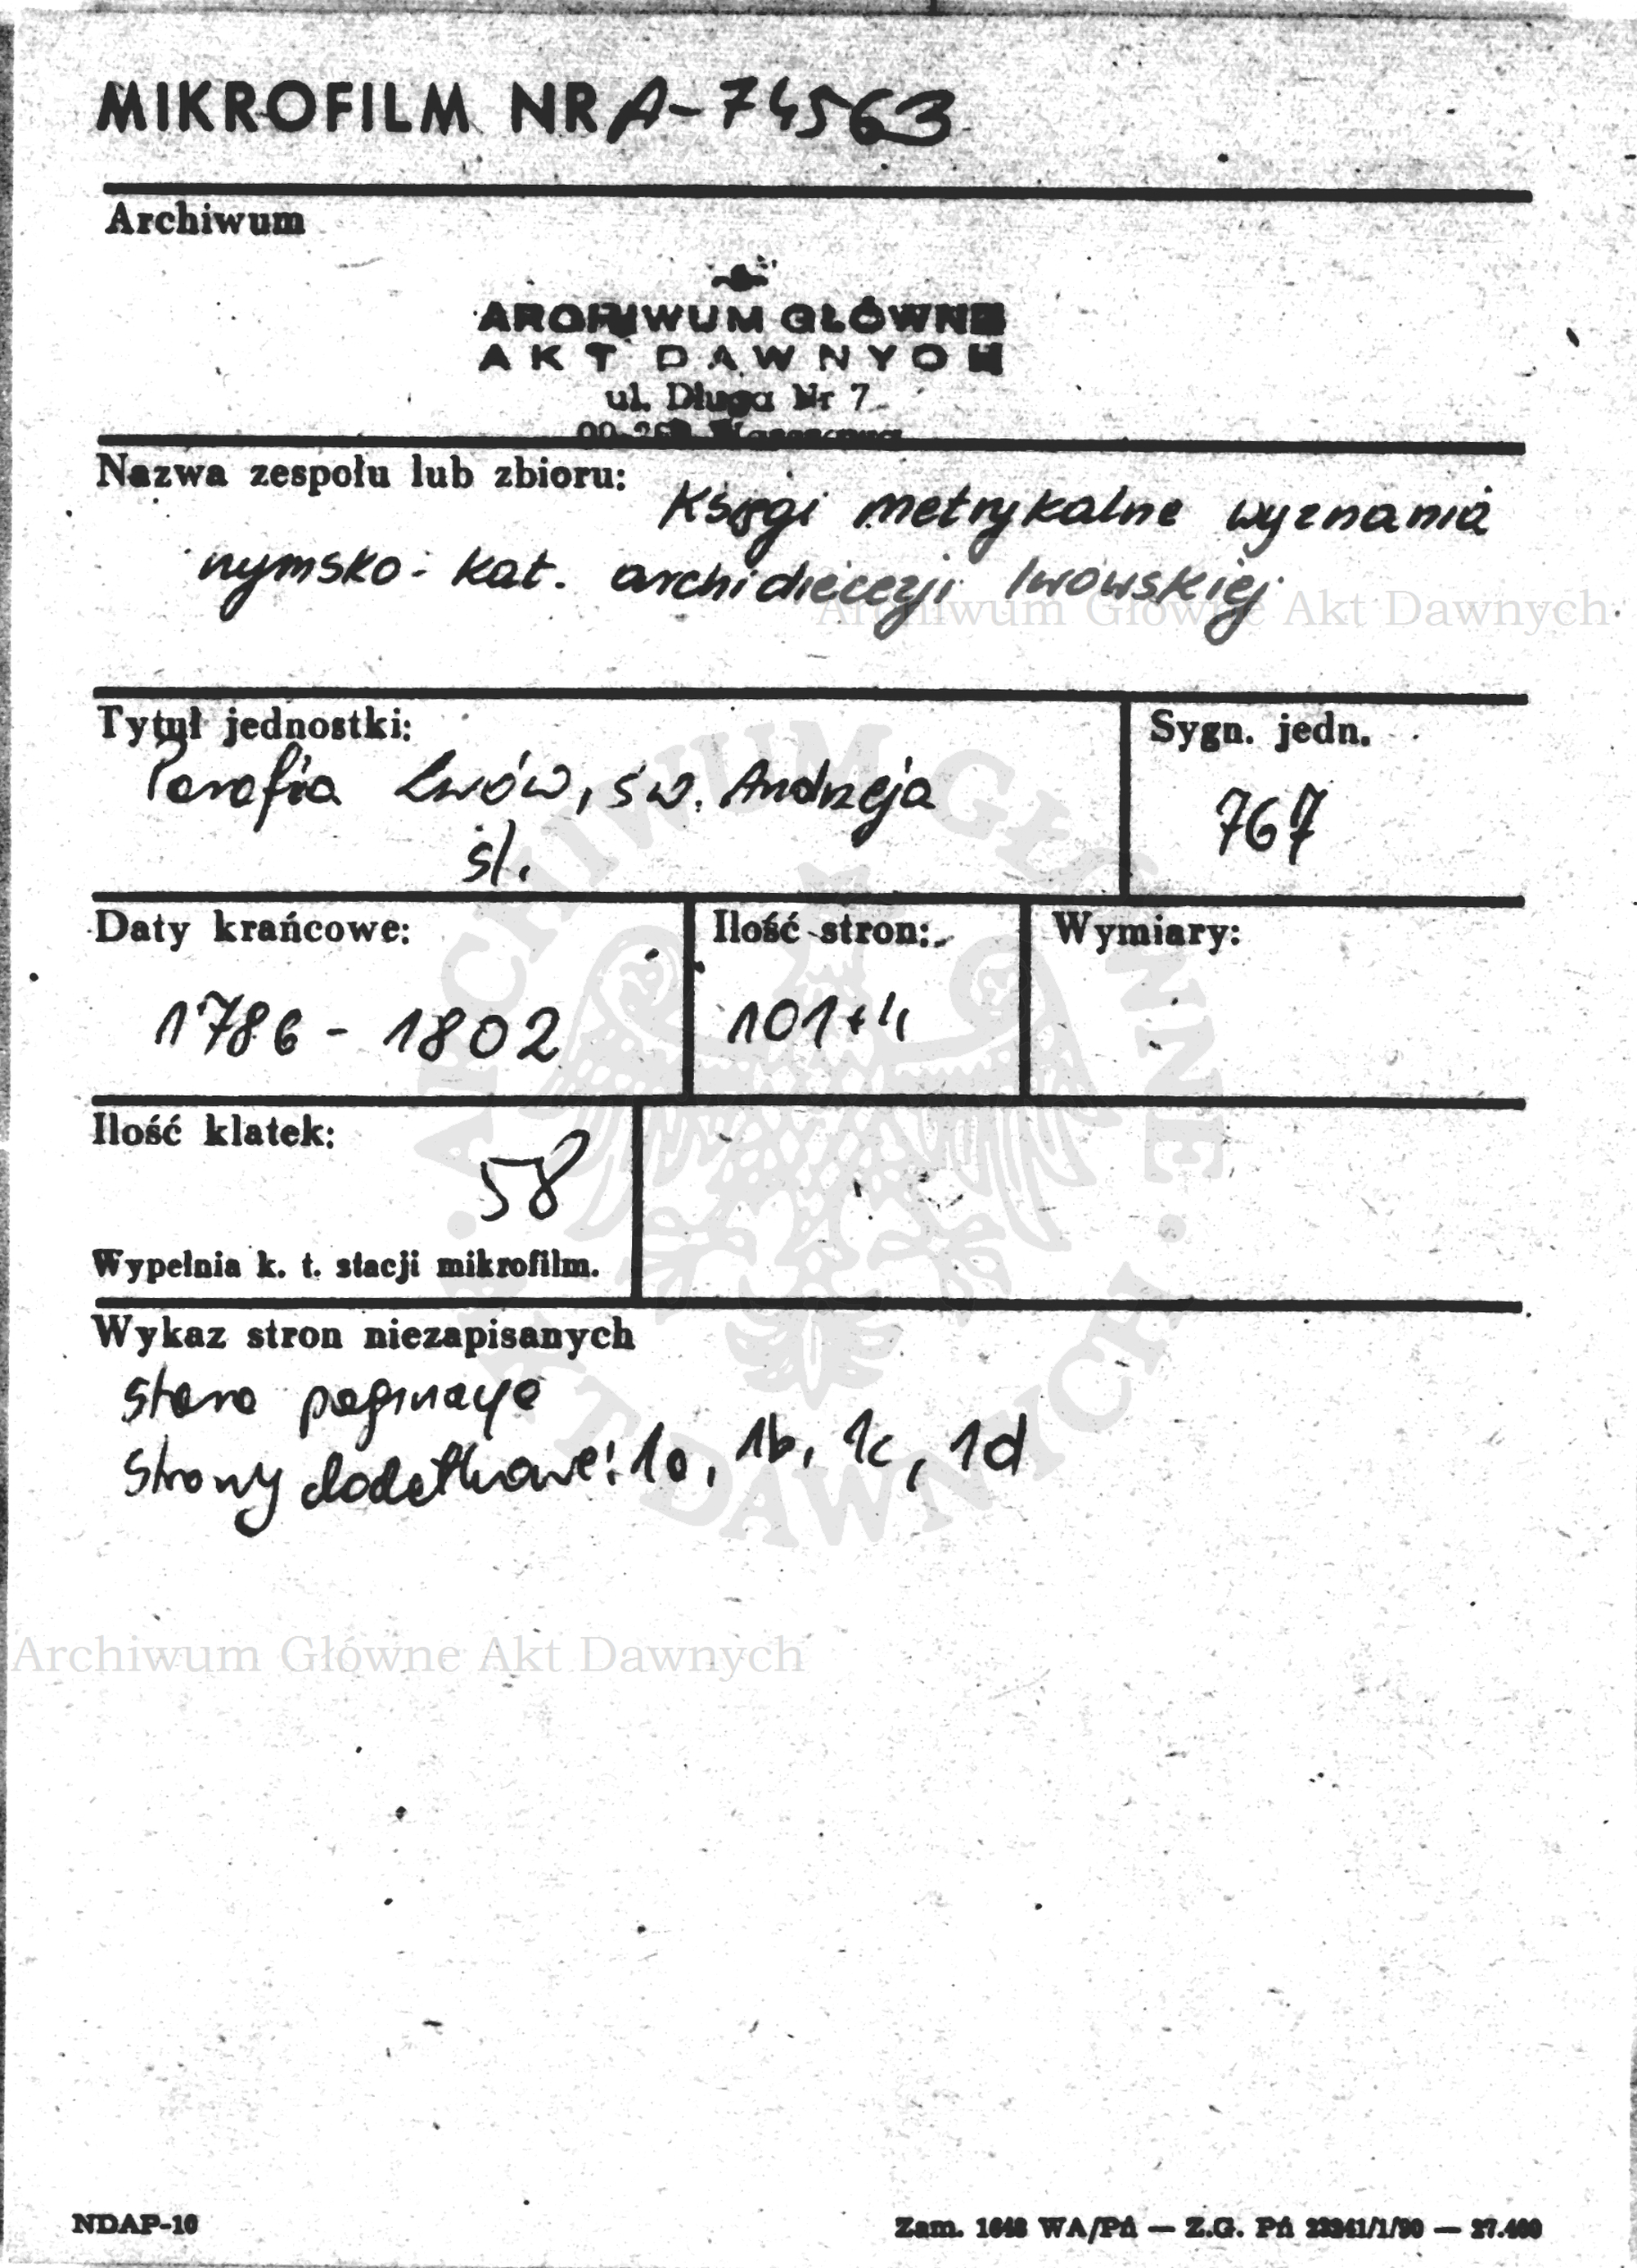 MIKROFILM NR A-74563
Archiwum
ARCHIWUM GŁÓWNE
AKT DAWNYCH
ul. Długa Nr 7
Nazwa zespołu lub zbioru: Księgi metrykalne wyznania
rzymsko-kat. archidiecezji lwowskiej
Archiwum Główne Akt Dawnych
Tytuł jednostki:
Parafia Lwów, św. Andrzeja
śl.
Sygn. jedn.
767
Daty krańcowe:
1786 - 1802
Ilość stron:
101+4
Wymiary:
Ilość klatek:
58
Wypełnia k. t. stacji mikrofilm.
Wykaz stron niezapisanych
stara paginacja
strony dodatkowe: 1a, 1b, 1c, 1d
ARCHIWUM GŁÓWNE · AKT DAWNYCH ·
Archiwum Główne Akt Dawnych
NDAP-10
Zam. 1648 WA/Pń — Z.G. Pń